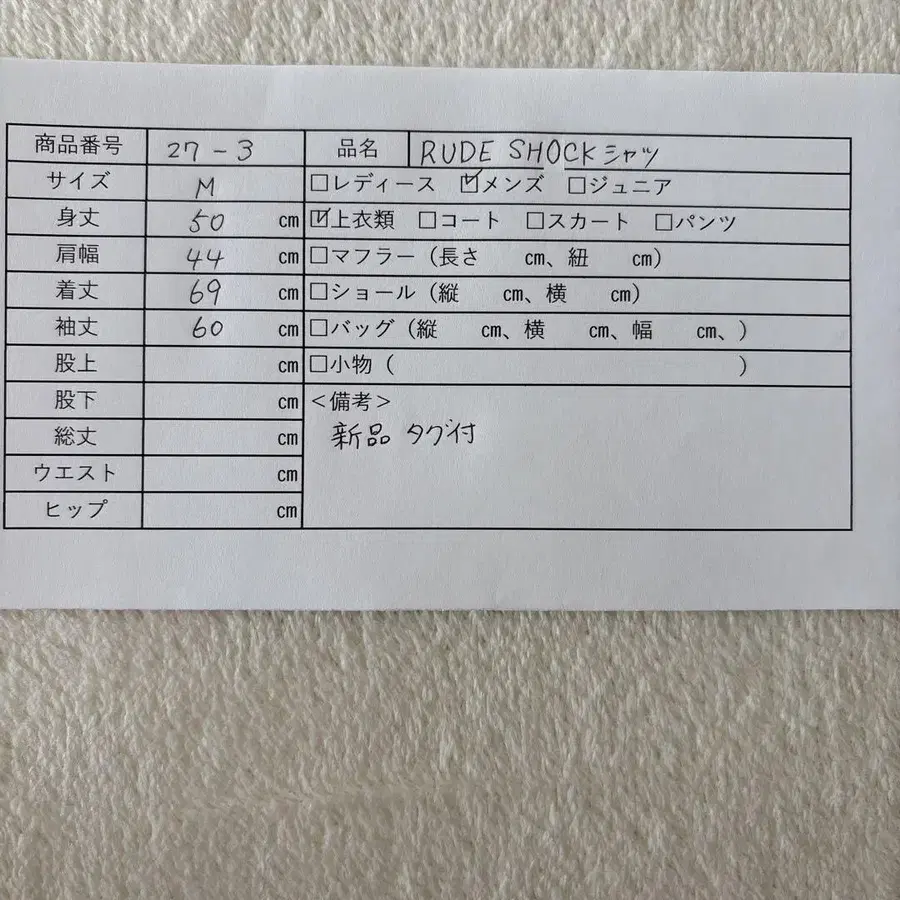 商品番号 27-3 品名 RUDE SHOCKシャツ
サイズ M □レディース ☑メンズ □ジュニア
身丈 50 cm ☑上衣類 □コート □スカート □パンツ
肩幅 44 cm □マフラー（長さ cm、紐 cm）
着丈 69 cm □ショール（縦 cm、横 cm）
袖丈 60 cm □バッグ（縦 cm、横 cm、幅 cm、）
股上 cm □小物（ ）
股下 cm ＜備考＞
総丈 cm 新品 タグ付
ウエスト cm
ヒップ cm